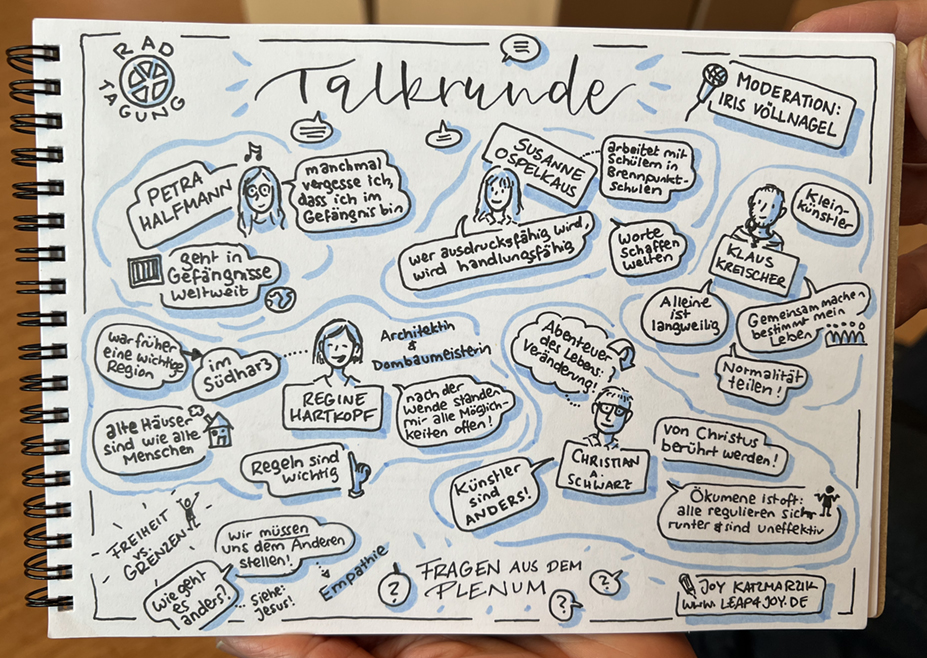 RAD
TAGUNG
Talkrunde
MODERATION:
IRIS VÖLLNAGEL
PETRA
HALFMANN
manchmal
vergesse ich,
dass ich im
Gefängnis bin
geht in
Gefängnisse
weltweit
SUSANNE
OSPELKAUS
arbeitet mit
Schülern in
Brennpunkt-
schulen
wer ausdrucksfähig wird,
wird handlungsfähig
worte
schaffen
welten
Klein-
künstler
KLAUS
KREISCHER
Alleine
ist
langweilig
Gemeinsam machen
bestimmt mein
Leben
Normalität
teilen!
war früher
eine wichtige
Region
im
Südharz
Architektin
&
Dombaumeisterin
REGINE
HARTKOPF
nach der
wende standen
mir alle Möglich-
keiten offen!
alte Häuser
sind wie alte
Menschen
Regeln sind
wichtig
Abenteuer
des Lebens:
Veränderung!
CHRISTIAN
A.
SCHWARZ
von Christus
berührt werden!
Künstler
sind
ANDERS!
Ökumene ist oft:
alle regulieren sich
runter & sind uneffektiv
FREIHEIT
vs.
GRENZEN
Wir müssen
uns dem Anderen
stellen!
Wie geht
es
anders?
siehe:
Jesus!
Empathie
FRAGEN AUS DEM
PLENUM
?
?
?
JOY KATZMARZIK
WWW.LEAP4JOY.DE